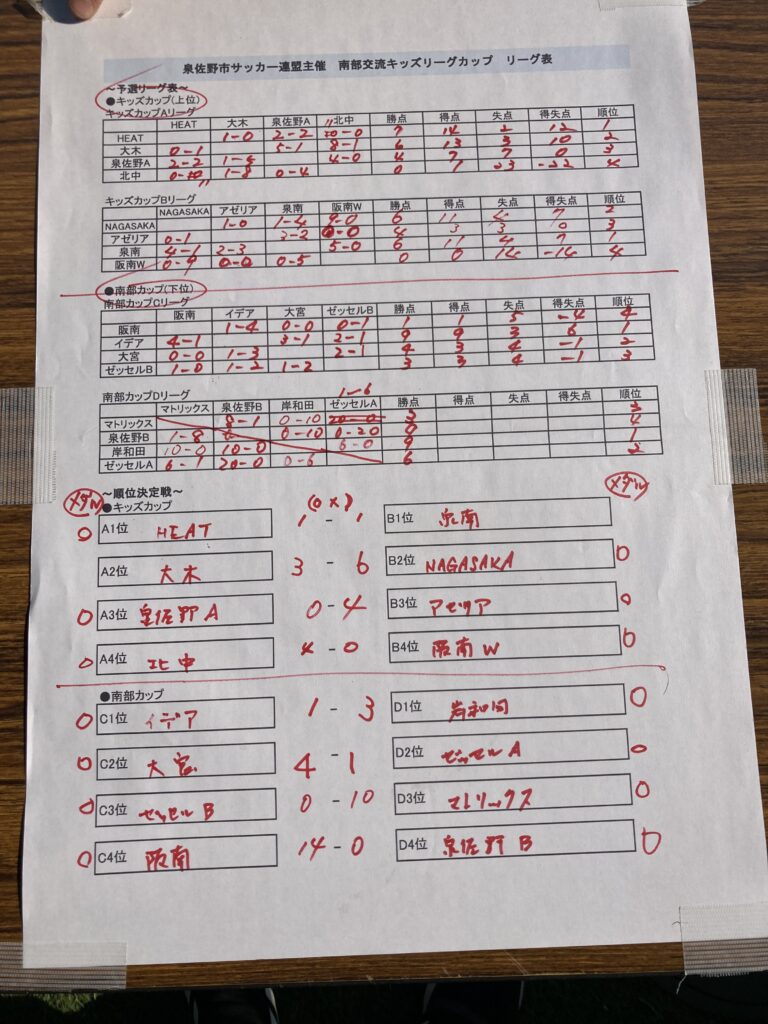 泉佐野市サッカー連盟主催　南部交流キッズリーグカップ　リーグ表
～予選リーグ表～
●キッズカップ(上位)
キッズカップAリーグ
HEAT 大木 泉佐野A 北中 勝点 得点 失点 得失点 順位
HEAT 1-0 2-2 10-0 7 14 2 12 1
大木 0-1 5-1 8-1 6 13 3 10 2
泉佐野A 2-2 4-0 4 7 7 0 3
北中 0-10 1-8 0-4 0 1 23 -22 4
キッズカップBリーグ
NAGASAKA アゼリア 泉南 阪南W 勝点 得点 失点 得失点 順位
NAGASAKA 1-0 1-4 9-0 6 11 7 2
アゼリア 0-1 3-2 0-0 4 3 3 0 3
泉南 4-1 2-3 5-0 6 11 4 7 1
阪南W 0-9 0-0 0-5 0 0 14 -14 4
●南部カップ(下位)
南部カップCリーグ
阪南 イデア 大宮 ゼッセルB 勝点 得点 失点 得失点 順位
阪南 1-4 0-0 0-1 1 1 5 -4 4
イデア 4-1 3-1 2-1 9 9 3 6 1
大宮 0-0 1-3 2-1 4 3 4 -1 2
ゼッセルB 1-0 1-2 1-2 3 3 4 -1 3
1-6
南部カップDリーグ
マトリックス 泉佐野B 岸和田 ゼッセルA 勝点 得点 失点 得失点 順位
マトリックス 8-1 0-10 3 3
泉佐野B 1-8 0-10 0-20 0 4
岸和田 10-0 10-0 6-0 9 1
ゼッセルA 6-1 20-0 0-6 6 2
～順位決定戦～
メダル メダル
●キッズカップ
A1位 HEAT 1 - 1 B1位 泉南
A2位 大木 3 - 6 B2位 NAGASAKA
A3位 泉佐野A 0-4 B3位 アゼリア
A4位 北中 4-0 B4位 阪南W
●南部カップ
C1位 イデア 1 - 3 D1位 岸和田
C2位 大宮 4-1 D2位 ゼッセルA
C3位 ゼッセルB 0-10 D3位 マトリックス
C4位 阪南 14-0 D4位 泉佐野B